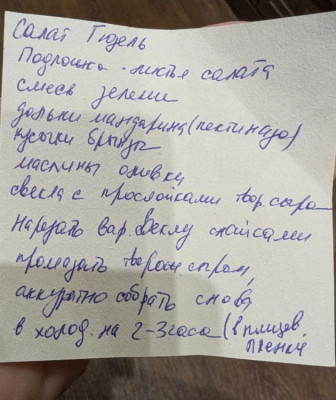 Салат Гюдель
Подложка - листья салата
смесь зелени
дольки мандарина (пектинадо)
кусочки брынзы
маслины оливки
свекла с прослойками твор. сыра
нарезать вар. свеклу слайсами
промазать творож сыром,
аккуратно собрать снова
в холод. на 2-3 часа (в пищев.
пленке